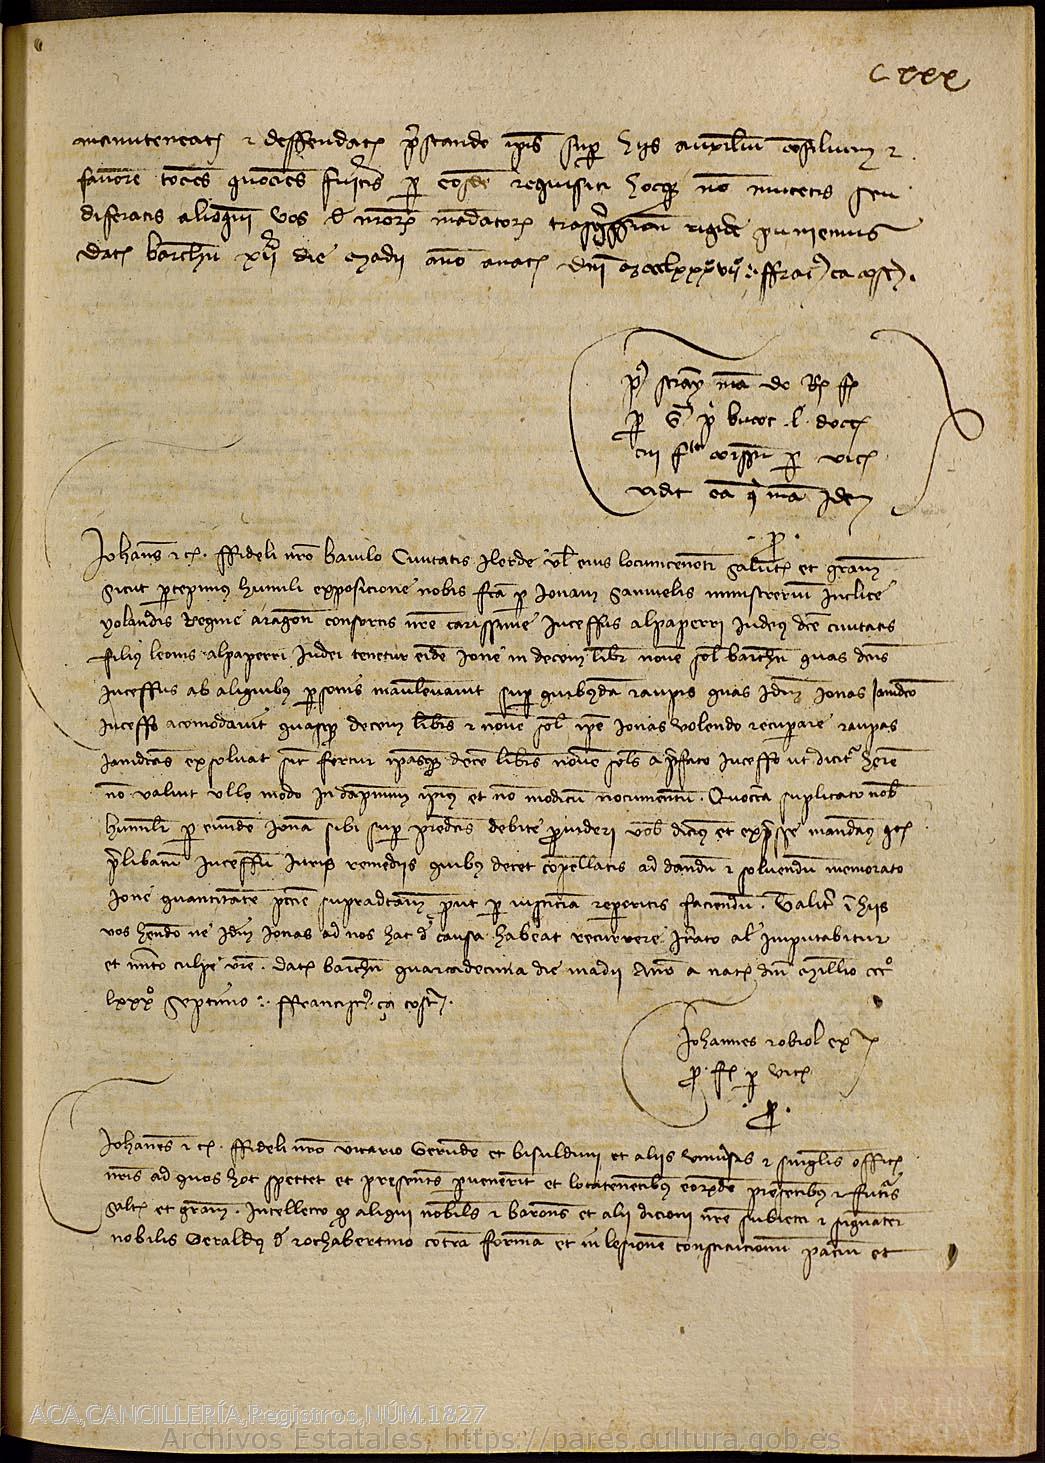 C xxx
manuteneatis et deffendatis prestando ipsis super hiis auxilium consilium et
favorem tociens quociens fueritis per eosdem requisiti hocque non mutetis seu
differatis alioquin vos de nostrorum mandatorum trasgressionem rigide puniemus
Datis barchinone xvii die madii anno a nat domini mccclxxxvii Ffranciscus ça costa
vidit eam
Johannes etc. Ffideli nostro baiulo Civitatis Ilerde vel eius locumtenenti salutem et gratiam
Sicut percepimus humili exposicione nobis facta per Jonam Samuelis ministrerium Inclite
yolandis Regine aragonum consortis nostre carissime Juceffus alpaperri Judeus dicte civitatis
filius leonis alpaperri Judei tenetur eidem Jone in decem libris novem solidis barchinone quas dictus
Juceffus ab aliquibus personis manulevavit super quibusdam raupis quas Idem Jonas Jamdicto
Juceffo acomodavit quasque decem libris et novem solidos ipse Jonas volendo recuperare raupas
iamdictas exsolvat sicut fertur ipasque decem libris novem solidos a prefato Juceffo ut dicitur habere
non valuit ullo modo In dapnum ipsius et non modicum nocumentum. Quocirca suplicato nobis
humiliter per eiundem Jonam sibi super predictis debite provideri vobis dicimus et expresse mandamus quatenus
prelibatum Juceffum Juris remediis quibus decet compellatis ad dandum et solvendum memorato
Jone quantitatem peccunie supradictam prout per iusticiam repperitis faciendum. Taliter in hiis
vos habendo ne Idem Jonas ad nos hac de causa habeat recurrere Iterato al Imputabitur
et merito culpe vestre. Datis barchinone quartadecima die madii Anno a nat domini Millesimo ccc
lxxx septimo Ffranciscus ça costa.
Johannes robiol ex
Johannes etc. Ffideli nostro vicario Gerunde et bisulduni et aliis universis et singulis offic
nostris ad quos hoc spectet et presentes pervenerit et locatenentibus eorundem presentibus et futuris
salutem et gratiam. Intellecto quod aliqui nobiles et barones et alii dicioni nostre subiecti et signanter
nobilis Geraldus de rochabertino contra formam et in lesionem constitucionum pacium et
ACA,CANCILLERÍA,Registros,NÚM.1827
Archivos Estatales, https://pares.cultura.gob.es